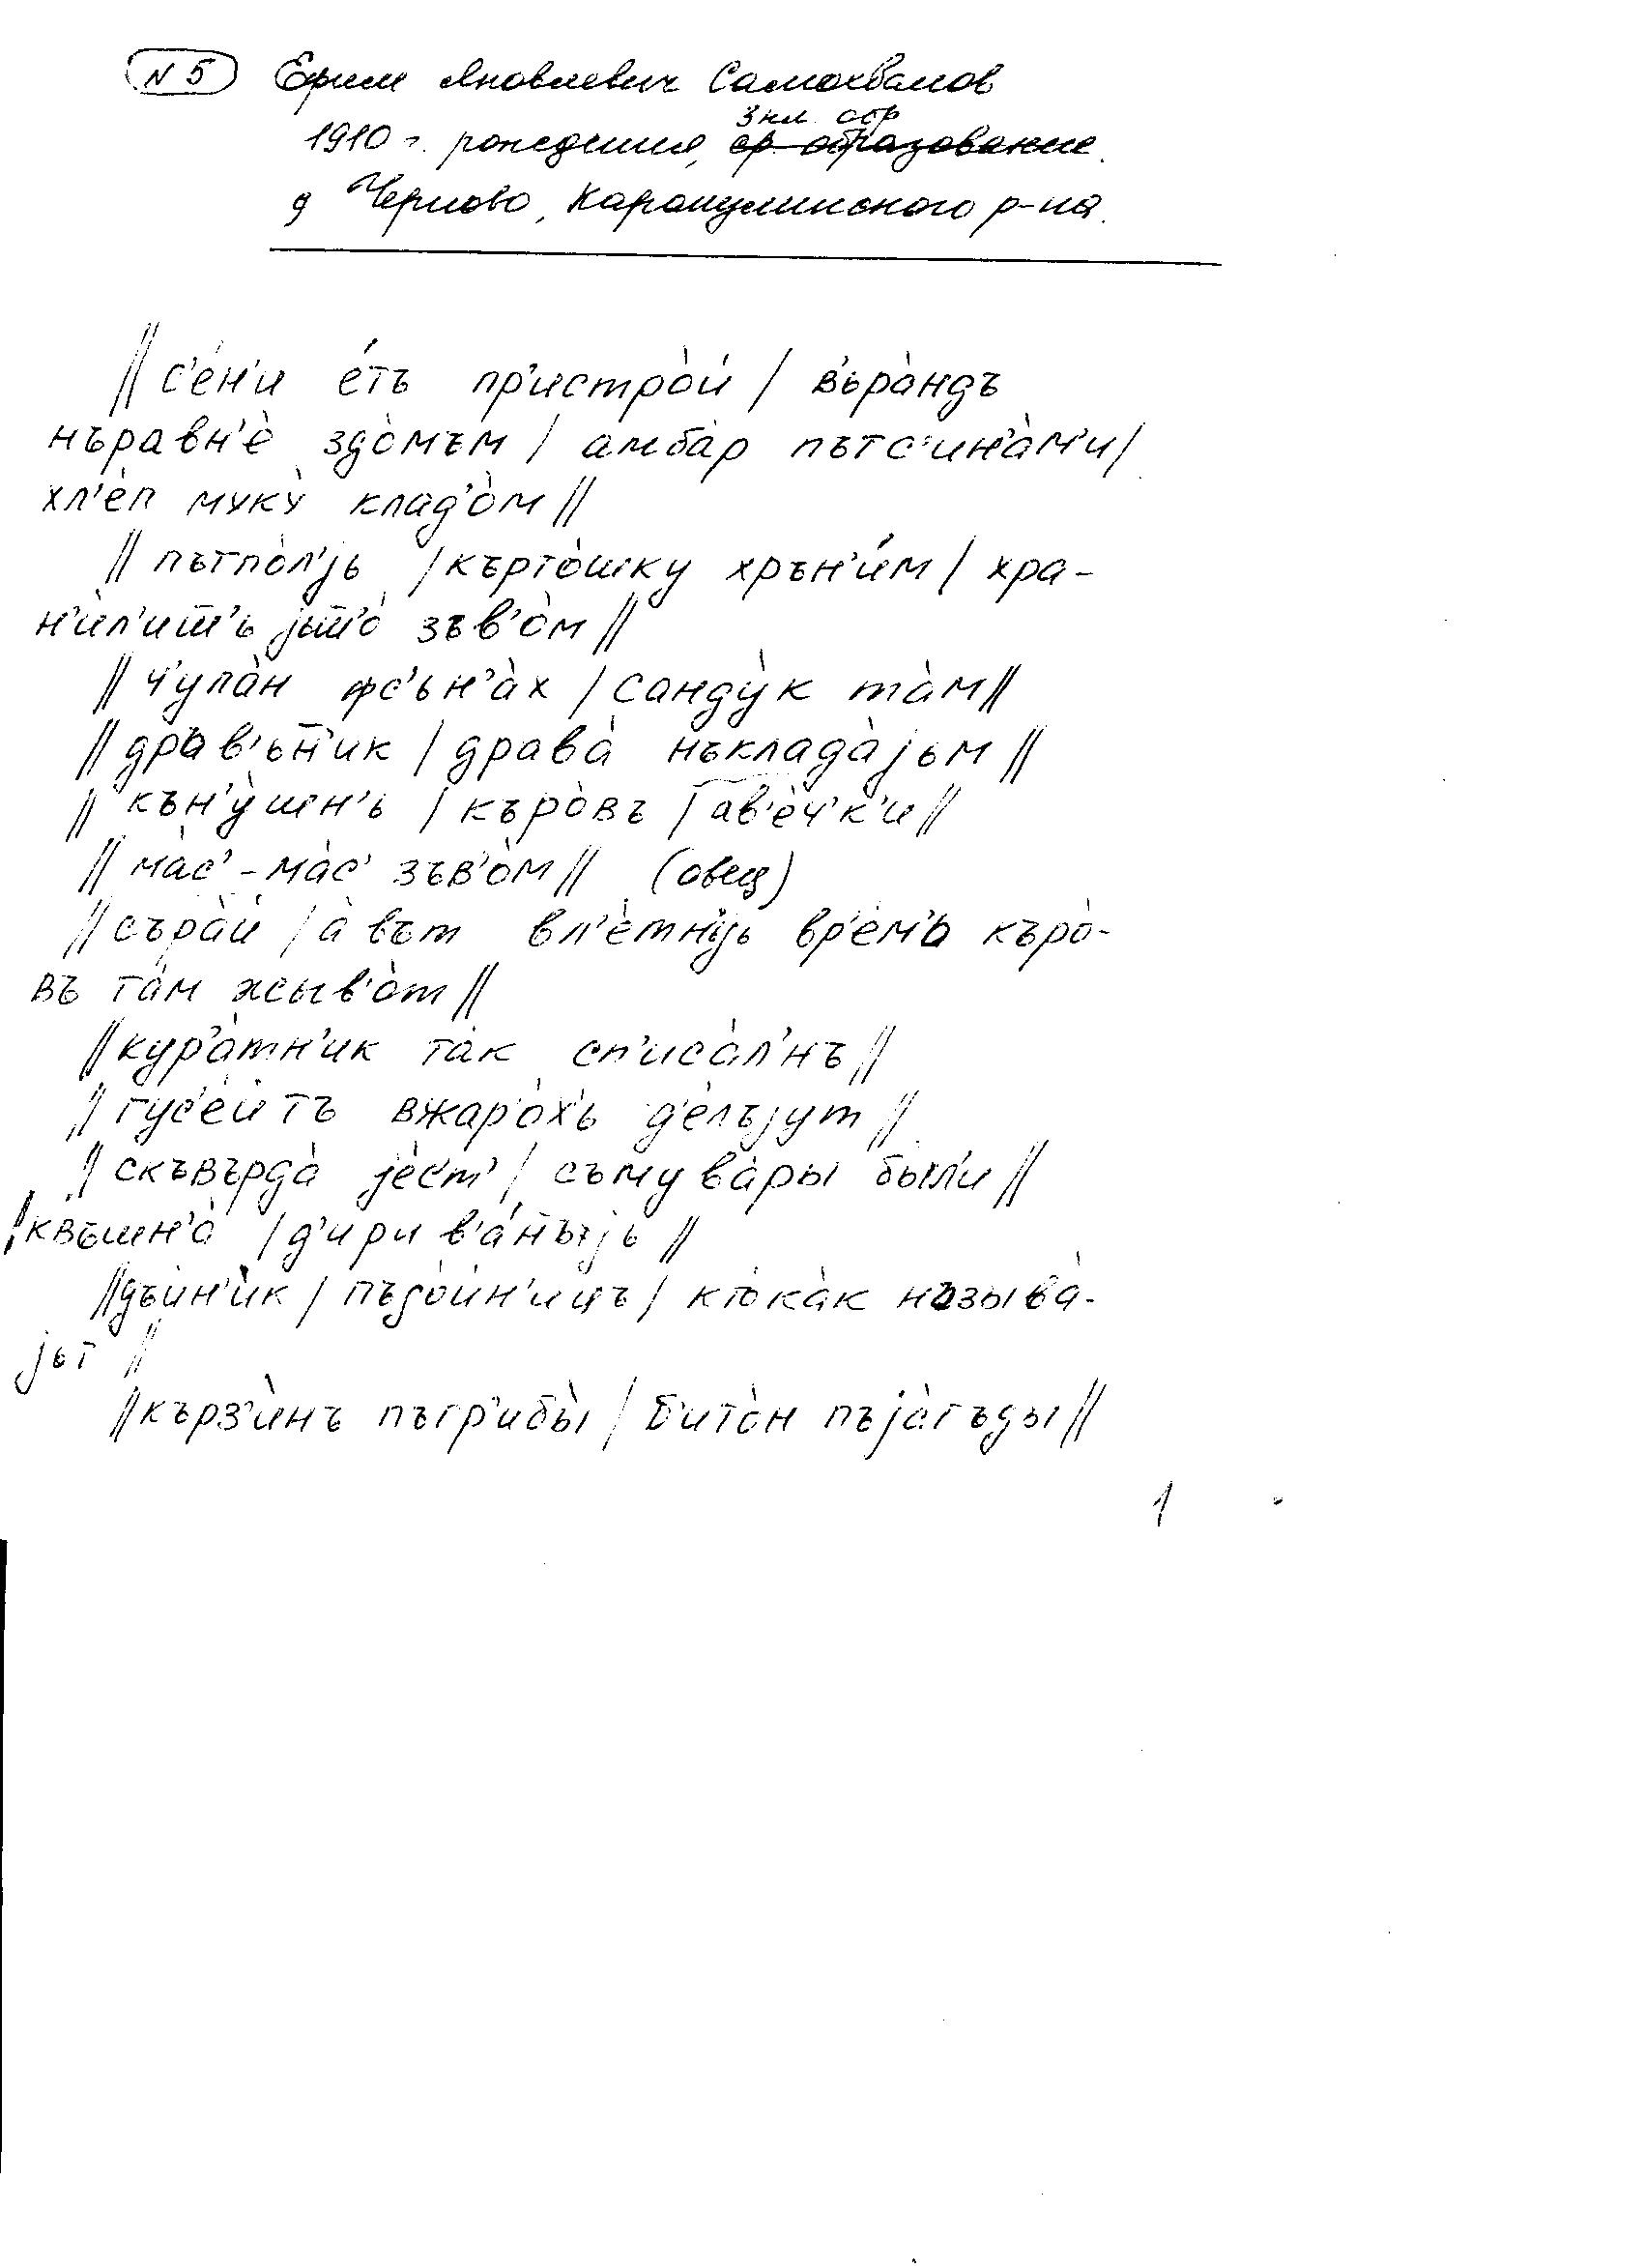 № 5 Ефим Яковлевич Самохвалов
3 кл. обр
1910 г. рождения, ср. образование.
д Черново, Карагулинского р-на.
|| с'е́н'и е́тъ пр'истро̀й / в'ьра̀ндъ
нъравн'ѐ здо̀мъм / амба̀р пътс'ин'а̀м'и /
хл'ѐп муку̀ клад'о̀м ||
|| пътпо̀л'jь / къртòшку хрън'и́м / хра-
н'ѝл'ит'ь jьт'о̀ зъв'о̀м ||
|| ч'ула̀н фс'ьн'а̀х / санду̀к та̀м ||
|| драв'ьн'ик / драва̀ нъклада̀jьм ||
|| кън'у̀шен'ь / къро̀въ / ав'ѐч'к'и ||
|| ма̀с' - ма̀с' зъв'о̀м || (овец)
|| съра̀й / а̀ вът вл'ѐтн'ьjь вр'ѐм'ь къро̀-
въ та̀м жыв'о̀т ||
|| кур'а̀тн'ик та̀к сп'иса̀л'нъ ||
|| гус'ѐй тъ вжаро̀х'ь д'ѐлъjут ||
|| скъвърда̀ jѐст' / съмува̀ры бы̀л'и ||
|| квъшн'а̀ / д'ир'ив'а́нъjь ||
|| дъйн'ѝк / пъдо̀йн'ицъ / кто̀ка̀к називà-
jьт ||
|| кърз'ѝнъ пъгр'ибы̀ / б'ито̀н пъjа̀гъды ||
1